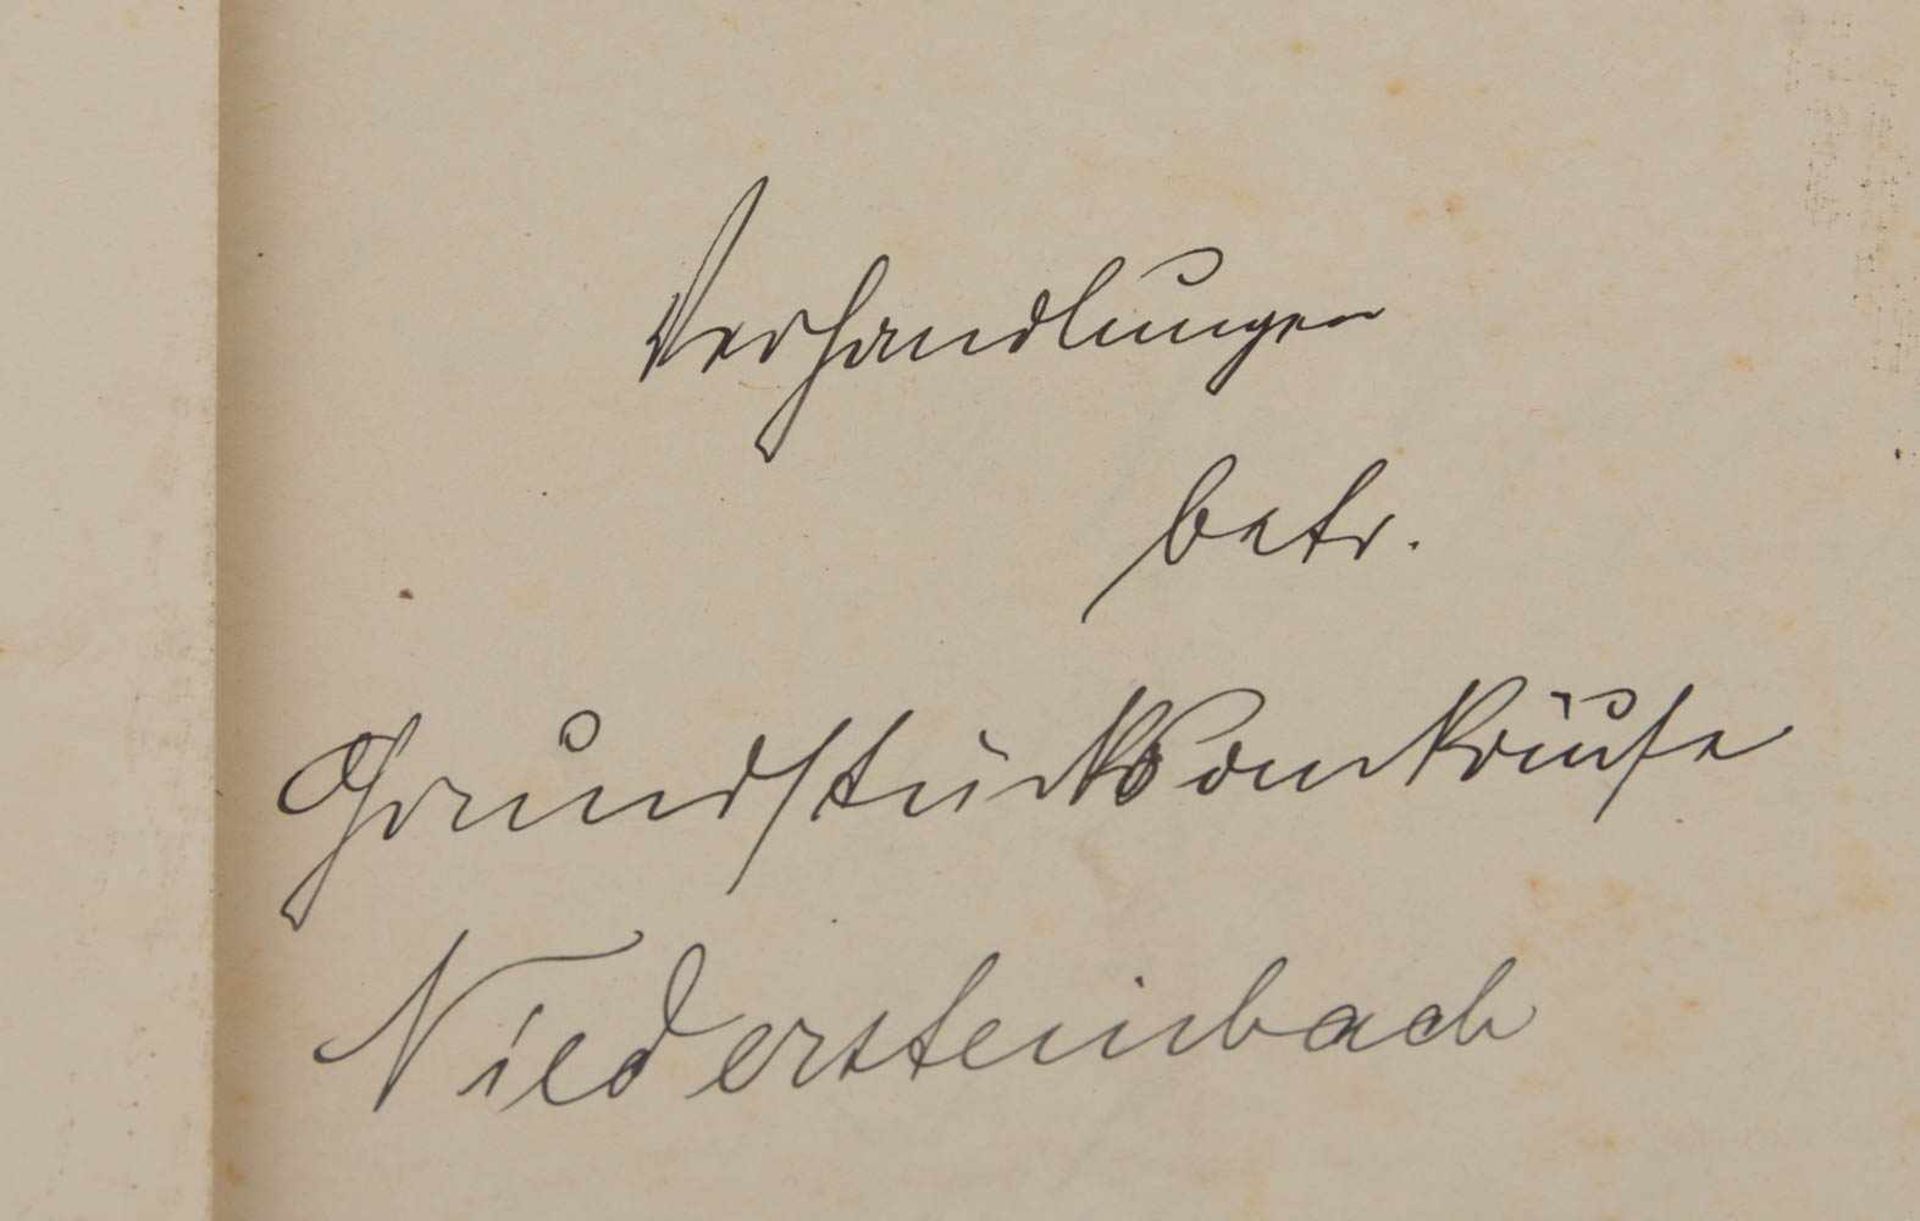 Verhandlungen
betr.
Grundstücksankäufe
Niedersteinbach